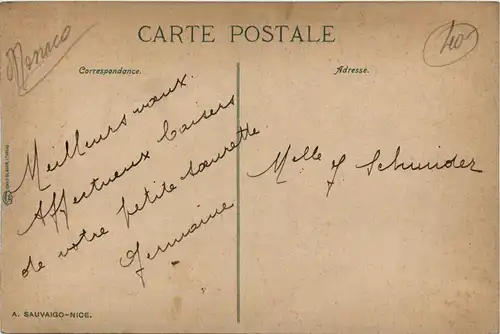 Monaco
CARTE POSTALE
40
Correspondance.
Adresse.
Meilleurs vœux.
Affectueux baisers
de votre petite sœurette
Germaine
Melle J Schnuider
A. SAUVAIGO-NICE.